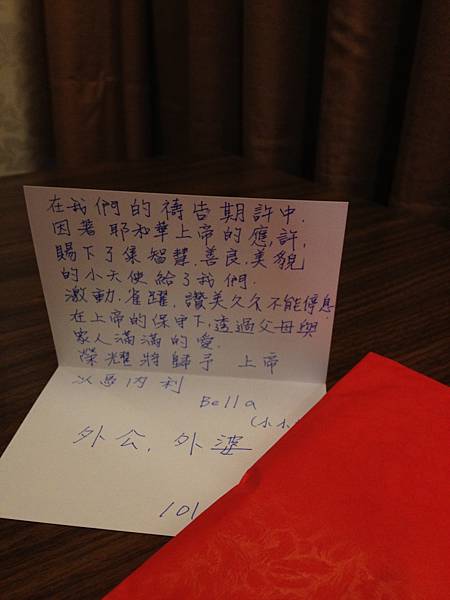 在我們的禱告期許中.
因著耶和華上帝的應許,
賜下了集智慧.善良.美貌
的小天使給了我們.
激動.雀躍.讚美久久不能停息
在上帝的保守下,透過父母與
家人滿滿的愛.
榮耀將歸予 上帝
以馬內利
Bella
(小小
外公.外婆
101